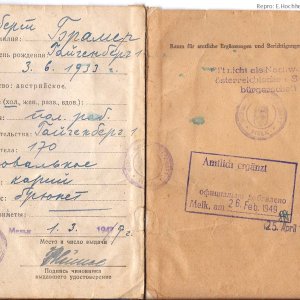 Repro: E.Hochhu
Брамер
день рождения Гайгенберг 1
3. 6. 1933 г.
во: австрийское.
(хол., жен., разв., вдов.):
пол. раб.
тельства: Гайгенберг 1
170
овальное
карий
брюнет
иметы:
Мельк 1. 3. 1949 г.
Место и число выдачи
Подпись чиновника
выдавшего удостоверение
Raum für amtliche Ergänzungen und Berichtigungen
nicht als Nachw
österreichische S
bürgerscha
Amtlich ergänzt
официально добавлено
Melk, am 26. Feb. 1949
25. April